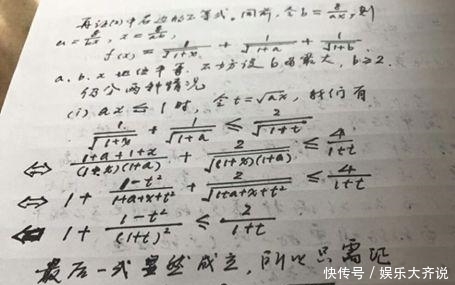 再证(2)中右边的不等式。同前，令 b = 8/ax，则
a = 8/bx, x = 8/ab,
f(x) = 1/√(1+x) + 1/√(1+a) + 1/√(1+b).
a, b, x 地位平等，不妨设 b 为最大，b ≥ 2.
仍分两种情况
(i) ax ≤ 1 时，令 t = √ax，我们有
1/√(1+x) + 1/√(1+a) ≤ 2/√(1+t)
⇔ (1+a+1+x)/((1+x)(1+a)) + 2/√((1+x)(1+a)) ≤ 4/(1+t)
⇔ 1 + (1-t²)/(1+a+x+t²) + 2/√(1+a+x+t²) ≤ 4/(1+t)
⇐ 1 + (1-t²)/(1+t)² ≤ 2/(1+t)
最后一式显然成立，所以只需证
快传号/娱乐大齐说